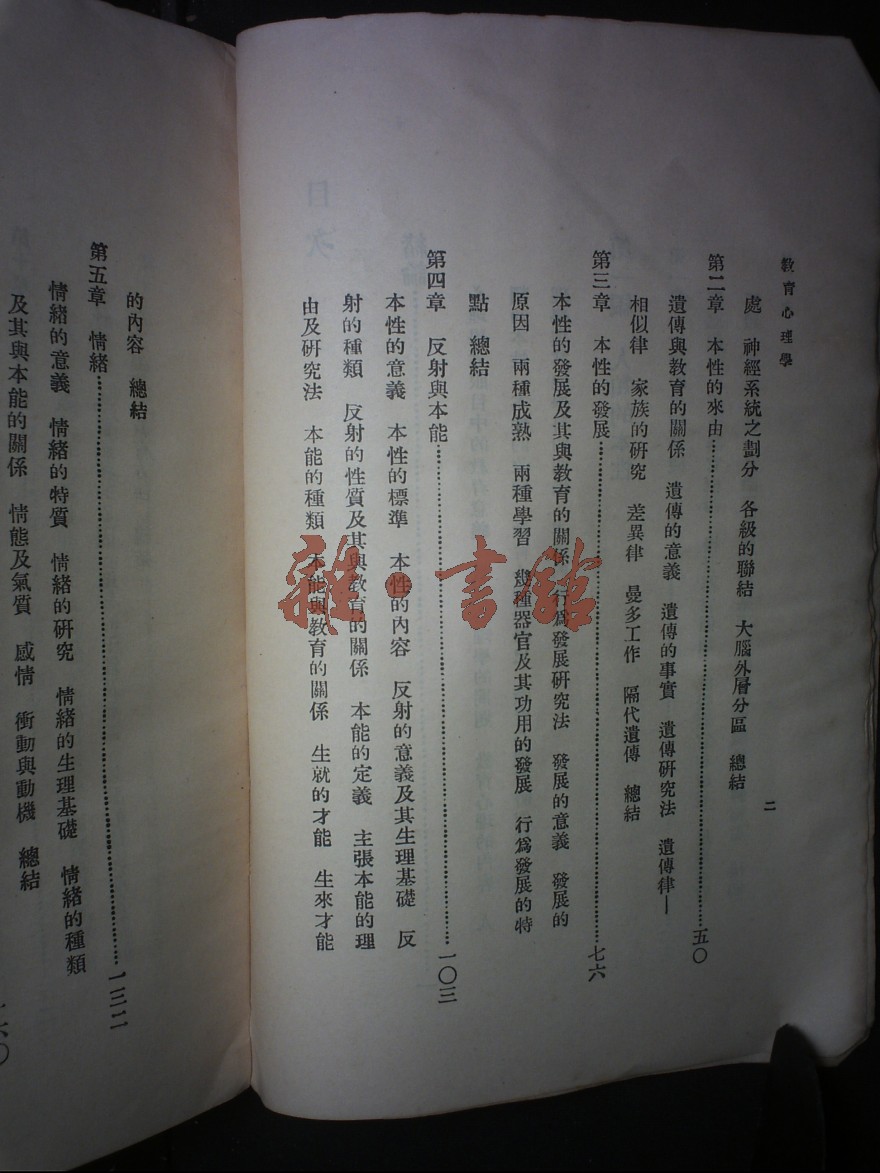 教育心理學
二
處　神經系統之劃分　各級的聯結　大腦外層分區　總結
第二章　本性的來由……五〇
遺傳與教育的關係　遺傳的意義　遺傳的事實　遺傳研究法　遺傳律—
相似律　家族的研究　差異律　曼多工作　隔代遺傳　總結
第三章　本性的發展……七六
本性的發展及其與教育的關係　行爲發展研究法　發展的意義　發展的
原因　兩種成熟　兩種學習　幾種器官及其功用的發展　行爲發展的特
點　總結
第四章　反射與本能……一〇三
本性的意義　本性的標準　本性的內容　反射的意義及其生理基礎　反
射的種類　反射的性質及其與教育的關係　本能的定義　主張本能的理
由及研究法　本能的種類　本能與教育的關係　生就的才能　生來才能
的內容　總結
第五章　情緒……一三二
情緒的意義　情緒的特質　情緒的研究　情緒的生理基礎　情緒的種類
及其與本能的關係　情態及氣質　感情　衝動與動機　總結
一六〇
雜·書館